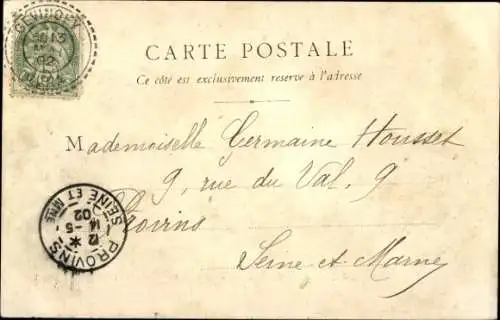 CARTE POSTALE
Ce côté est exclusivement réservé à l'adresse
Mademoiselle Germaine Housset
9, rue du Val, 9
Provins
Seine et Marne
PROVINS
12
14 -5
02
SEINE ET MNE
13
02